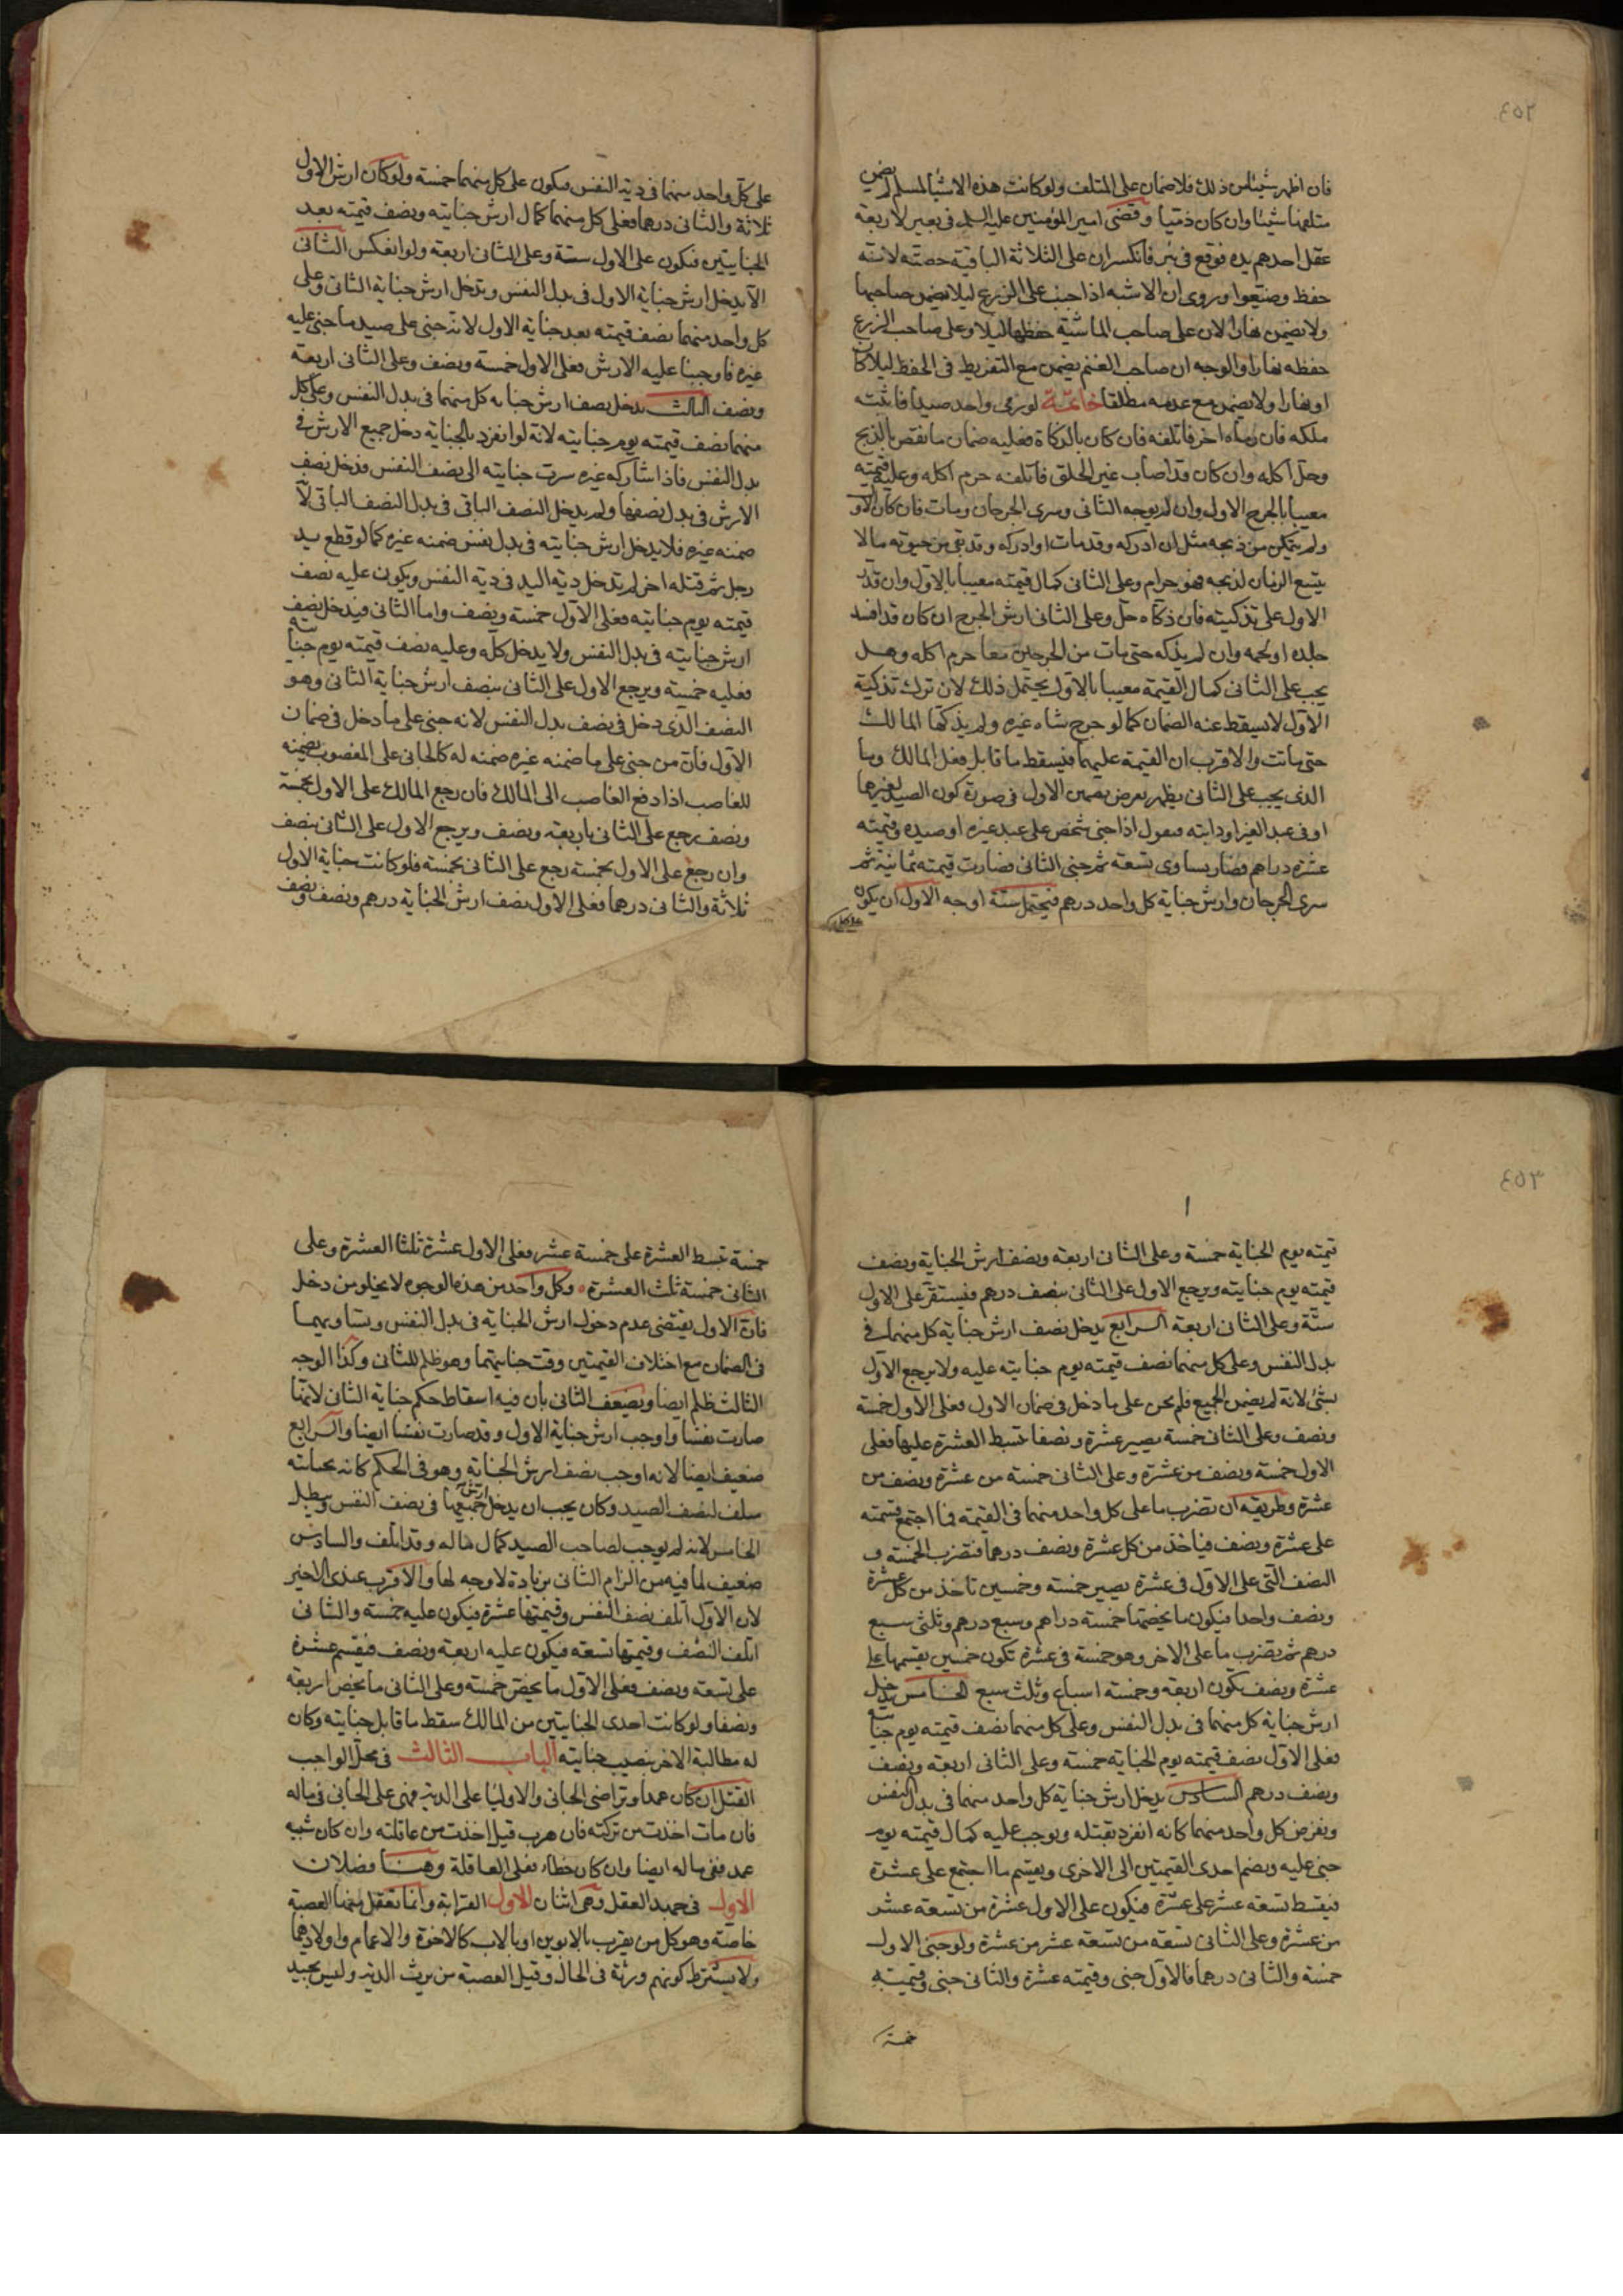 ٤٥٢
فان اظهر شيئا من ذلك فلا ضمان على المتلف ولو كانت هذه الاشيا لمسلم لم يضمن
متلفها شيئا وان كان ذميا وقضى امير المؤمنين عليه السلم في بعير لاربعة
عقل احدهم يده فوقع في بئر فانكسر ان على الثلاثة الباقية حصته لانه
حفظ وضيعوا وروى ان الاشبه اذا جنت على الزرع ليلا يضمن صاحبها
ولا يضمن نهارا لان على صاحب الماشية حفظها ليلا وعلى صاحب الزرع
حفظه نهارا والوجه ان صاحب الغنم يضمن مع التفريط في الحفظ ليلا كان
او نهارا ولا يضمن مع عدمه مطلقا خاتمة لو رمى واحد صيدا فاثبته
ملكه فان رماه اخر فاتلفه فان كان بالذكاة فعليه ضمان ما نقص بالذبح
وحل اكله وان كان قد اصاب غير الحلق فاتلفه حرم اكله وعليه قيمته
معيبا بالجرح الاول وان لم يوجه الثانى وسرى الجرحان ومات فان كان الاو
ولم يتمكن من ذبحه مثل ان ادركه وقد مات او ادركه وقد بقى من حيوته ما لا
يتسع الزمان لذبحه فهو حرام وعلى الثانى كمال قيمته معيبا بالاول وان قدر
الاول على تذكيته فان ذكاه حل وعلى الثانى ارش الجرح ان كان قد افسد
جلده او لحمه وان لم يذكه حتى مات من الجرحين معا حرم اكله وهل
يجب على الثانى كمال القيمة معيبا بالاول يحتمل ذلك لان ترك تذكية
الاول لا يسقط عنه الضمان كما لو جرح شاه غيره ولم يذكها المالك
حتى ماتت والاقرب ان القيمة عليهما فيسقط ما قابل فعل المالك وما
الذى يجب على الثانى يظهر بفرض تضمين الاول في صورة كون الصيد لغيرهما
او في عبد الغير او دابته فنقول اذا جنى شخص على عبد غيره او صيده وقيمته
عشرة دراهم فصار يساوى تسعة ثم جنى الثانى فصارت قيمته ثمانية ثم
سرى الجرحان وارش جناية كل واحد درهم فيحتمل ستة اوجه الاول ان يكون
على كل
على كل واحد منهما في دية النفس فيكون على كل منهما خمسة ولو كان ارش الاول
ثلاثة والثانى درهما فعلى كل منهما كمال ارش جنايته ونصف قيمته بعد
الجنايتين فيكون على الاول ستة وعلى الثانى اربعة ولو انعكس الثانى
الا يدخل ارش جناية الاول في بدل النفس وتدخل ارش جناية الثانى وعلى
كل واحد منهما نصف قيمته بعد جناية الاول لانه جنى على صيد ما جنى عليه
غيره فاوجبنا عليه الارش فعلى الاول خمسة ونصف وعلى الثانى اربعة
ونصف الثالث يدخل نصف ارش جناية كل منهما في بدل النفس وعلى كل
منهما نصف قيمته يوم جنايته لانه لو انفرد بالجناية دخل جميع الارش في
بدل النفس فاذا شاركه غيره سرت جنايته الى نصف النفس فدخل نصف
الارش في بدل نصفها ولم يدخل النصف الباقى في بدل النصف الباقى لا
ضمنه غيره فلا يدخل ارش جنايته في بدل نفس ضمنه غيره كما لو قطع يد
رجل ثم قتله اخر لم تدخل دية اليد في دية النفس ويكون عليه نصف
قيمته يوم جنايته فعلى الاول خمسة ونصف واما الثانى فيدخل نصف
ارش جنايته في بدل النفس ولا يدخل كله وعليه نصف قيمته يوم جنايته
فعليه خمسة ويرجع الاول على الثانى بنصف ارش جناية الثانى وهو
النصف الذى دخل في نصف بدل النفس لانه جنى على ما دخل في ضمان
الاول فان من جنى على ما ضمنه غيره ضمنه له كالجانى على المغصوب يضمنه
للغاصب اذا دفع الغاصب الى المالك فان رجع المالك على الاول بخمسة
ونصف رجع على الثانى باربعة ونصف ويرجع الاول على الثانى بنصف
وان رجع على الاول بخمسة رجع على الثانى بخمسة فلو كانت جناية الاول
ثلاثة والثانى درهما فعلى الاول نصف ارش الجناية درهم ونصف ونصف
٤٥٣
قيمته يوم الجناية خمسة وعلى الثانى اربعة ونصف ارش الجناية ونصف
قيمته يوم جنايته ويرجع الاول على الثانى بنصف درهم فيستقر على الاول
ستة وعلى الثانى اربعة الرابع يدخل نصف ارش جناية كل منهما في
بدل النفس وعلى كل منهما نصف قيمته يوم جنايته عليه ولا يرجع الاول
بشئ لانه لم يضمن الجميع فلم يجن على ما دخل في ضمان الاول فعلى الاول خمسة
ونصف وعلى الثانى خمسة يصير عشرة ونصفا تبسط العشرة عليها فعلى
الاول خمسة ونصف من عشرة وعلى الثانى خمسة من عشرة ونصف من
عشرة وطريقه ان تضرب ما على كل واحد منهما في القيمة فما اجتمع قسمته
على عشرة ونصف فياخذ من كل عشرة ونصف درهما فتضرب الخمسة و
النصف التى على الاول في عشرة يصير خمسة وخمسين تاخذ من كل عشرة
ونصف واحدا فيكون ما يخصها خمسة دراهم وسبع درهم وثلثى سبع
درهم ثم تضرب ما على الاخر وهو خمسة في عشرة تكون خمسين يقسمها على
عشرة ونصف يكون اربعة وخمسة اسباع وثلث سبع الخامس يدخل
ارش جناية كل منهما في بدل النفس وعلى كل منهما نصف قيمته يوم جنايته
فعلى الاول نصف قيمته يوم الجناية خمسة وعلى الثانى اربعة ونصف
ونصف درهم السادس يدخل ارش جناية كل واحد منهما في بدل النفس
ويفرض كل واحد منهما كانه انفرد بقتله ويوجب عليه كمال قيمته يوم
جنى عليه ويضم احدى القيمتين الى الاخرى ويقسم ما اجتمع على عشرة
فيقسط تسعة عشر على عشرة فيكون على الاول عشرة من تسعة عشر
من عشرة وعلى الثانى تسعة من تسعة عشر من عشرة ولو جنى الاول
خمسة والثانى درهما فالاول جنى وقيمته عشرة والثانى جنى وقيمته
خمسة
خمسة تبسط العشرة على خمسة عشر فعلى الاول عشرة ثلثا العشرة وعلى
الثانى خمسة ثلث العشرة وكل واحد من هذه الوجوه لا يخلو من دخل
فان الاول يقتضى عدم دخول ارش الجناية في بدل النفس وتساويهما
في الضمان مع اختلاف القيمتين وقت جنايتهما وهو ظلم للثانى وكذا الوجه
الثالث ظلم ايضا ويضعف الثانى بان فيه اسقاط حكم جناية الثانى لانها
صارت نفسا واوجب ارش جناية الاول وقد صارت نفسا ايضا والرابع
ضعيف ايضا لانه اوجب نصف ارش الجناية وهو في الحكم كانه بجنايته
سلف لنصف الصيد وكان يجب ان يدخل ارش جميعها في نصف النفس ويبطل
الخامس لانه لم يوجب لصاحب الصيد كمال ماله وقد اتلف والسادس
ضعيف لما فيه من الزام الثانى بزيادة لا وجه لها والاقرب عندى الاخير
لان الاول اتلف نصف النفس وقيمتها عشرة فيكون عليه خمسة والثانى
اتلف النصف وقيمتها تسعة فيكون عليه اربعة ونصف فيقسم عشرة
على تسعة ونصف فعلى الاول ما يخص خمسة وعلى الثانى ما يخص اربعة
ونصفا ولو كانت احدى الجنايتين من المالك سقط ما قابل جنايته وكان
له مطالبة الاخر بنصيب جنايته الباب الثالث في محل الواجب
القتل ان كان عمدا وتراضى الجانى والاوليا على الدية فهى على الجانى في ماله
فان مات اخذت من تركته فان هرب قيل اخذت من عاقلته وان كان شبيه
عمد ففى ماله ايضا وان كان خطاء فعلى العاقلة وهنا فصلان
الاول في جهة العقل وهى اثنان الاول القرابة وانما تعقل منها العصبة
خاصة وهو كل من يقرب بالابوين او بالاب كالاخوة والاعمام واولادهما
ولا يشترط كونهم ورثة في الحال وقيل العصبة من يرث الدية وليس بجيد